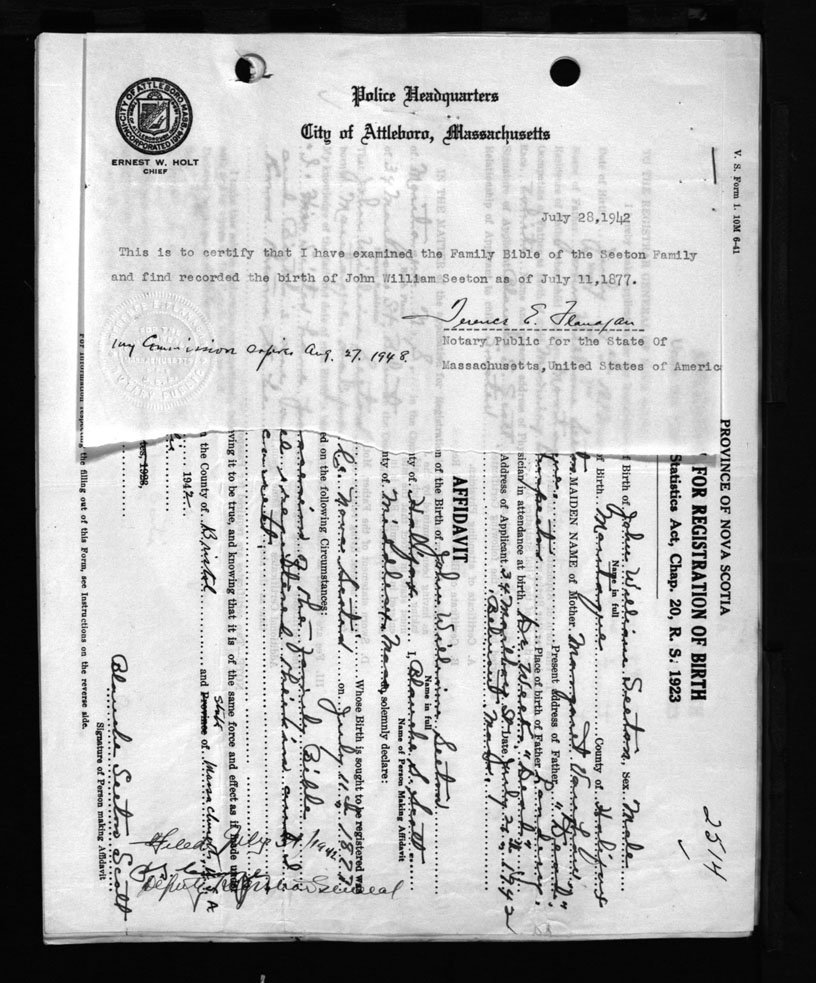 CITY OF ATTLEBORO MASS.
INCORPORATED 1914
ERNEST W. HOLT
CHIEF
Police Headquarters
City of Attleboro, Massachusetts
July 28,1942
This is to certify that I have examined the Family Bible of the Seeton Family
and find recorded the birth of John William Seeton as of July 11,1877.
Terence E. Flanagan
Notary Public for the State Of
Massachusetts,United States of Americ
my Commission expires Aug. 27. 1948
V. S. Form 1. 10M 6-41
PROVINCE OF NOVA SCOTIA
FOR REGISTRATION OF BIRTH
Statistics Act, Chap. 20, R. S. 1923
2514
Birth of John William Seeton Sex Male
Name in full
of Birth County of Halifax
MAIDEN NAME of Mother Margaret
Present Address of Father "Dead"
Place of birth of Father
Physician in attendance at birth Dr. "Dead"
Address of Applicant 34 Marlboro St. Date July 1942
Belmont Mass.
AFFIDAVIT
of the Birth of John William Seeton
Name in full
ty of Halifax I, Blanche S. Scott
Name of Person Making Affidavit
nty of Middlesex Mass, solemnly declare:
Whose Birth is sought to be registered was
Nova Scotia on July 11th 1877
ed on the following Circumstances:
the Family Bible
ving it to be true, and knowing that it is of the same force and effect as if made under
1942
n the County of Bristol and Province of State Massachusetts
Blanche Seeton Scott
Signature of Person making Affidavit
For information respecting the filling out of this Form, see Instructions on the reverse side.
Filed July 31 1942
Deputy Registrar General